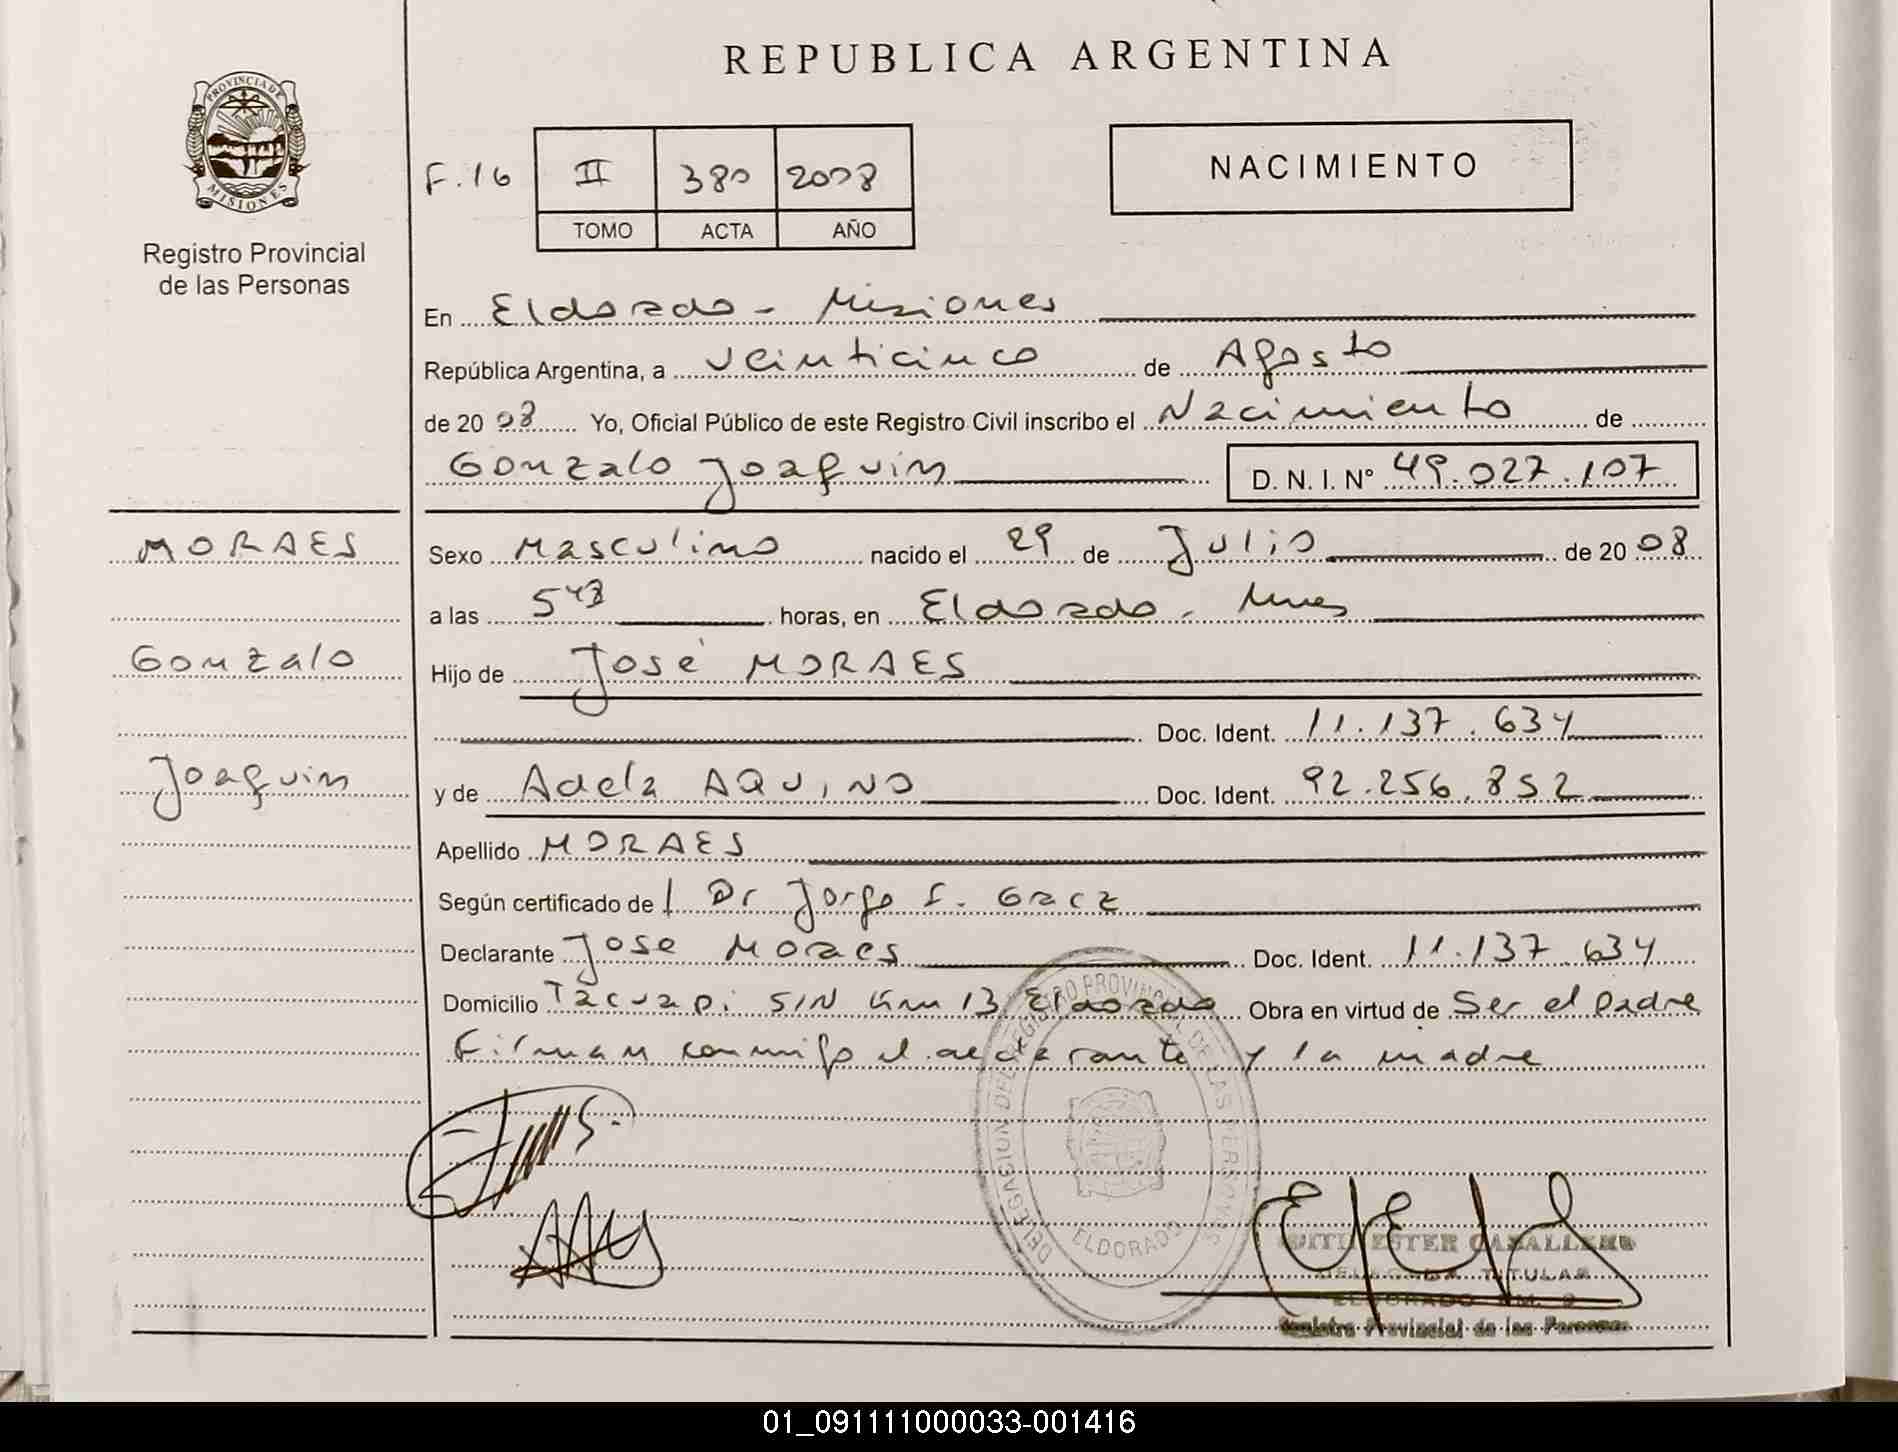 REPUBLICA ARGENTINA
PROVINCIA DE MISIONES
Registro Provincial
de las Personas
F.16 II 380 2008
TOMO ACTA AÑO
NACIMIENTO
En Eldorado - Misiones
República Argentina, a veinticinco de Agosto
de 2008 Yo, Oficial Público de este Registro Civil inscribo el Nacimiento de
Gonzalo Joaquin D. N. I. Nº 49.027.107
MORAES
Gonzalo
Joaquin
Sexo Masculino nacido el 29 de Julio de 2008
a las 5 43 horas, en Eldorado - Mnes
Hijo de José MORAES
Doc. Ident. 11.137.634
y de Adela AQUINO Doc. Ident. 92.256.852
Apellido MORAES
Según certificado de l Dr Jorge
Declarante Jose Moraes Doc. Ident. 11.137.634
Domicilio Tacuapi S/N Km 13 Eldorado Obra en virtud de Ser el padre
Firman conmigo el declarante y la madre
DELEGACION DEL REGISTRO PROVINCIAL DE LAS PERSONAS
ELDORADO
ESTER CABALLERO
DELEGADA TITULAR
ELDORADO KM. 9
Registro Provincial de las Personas
01_091111000033-001416